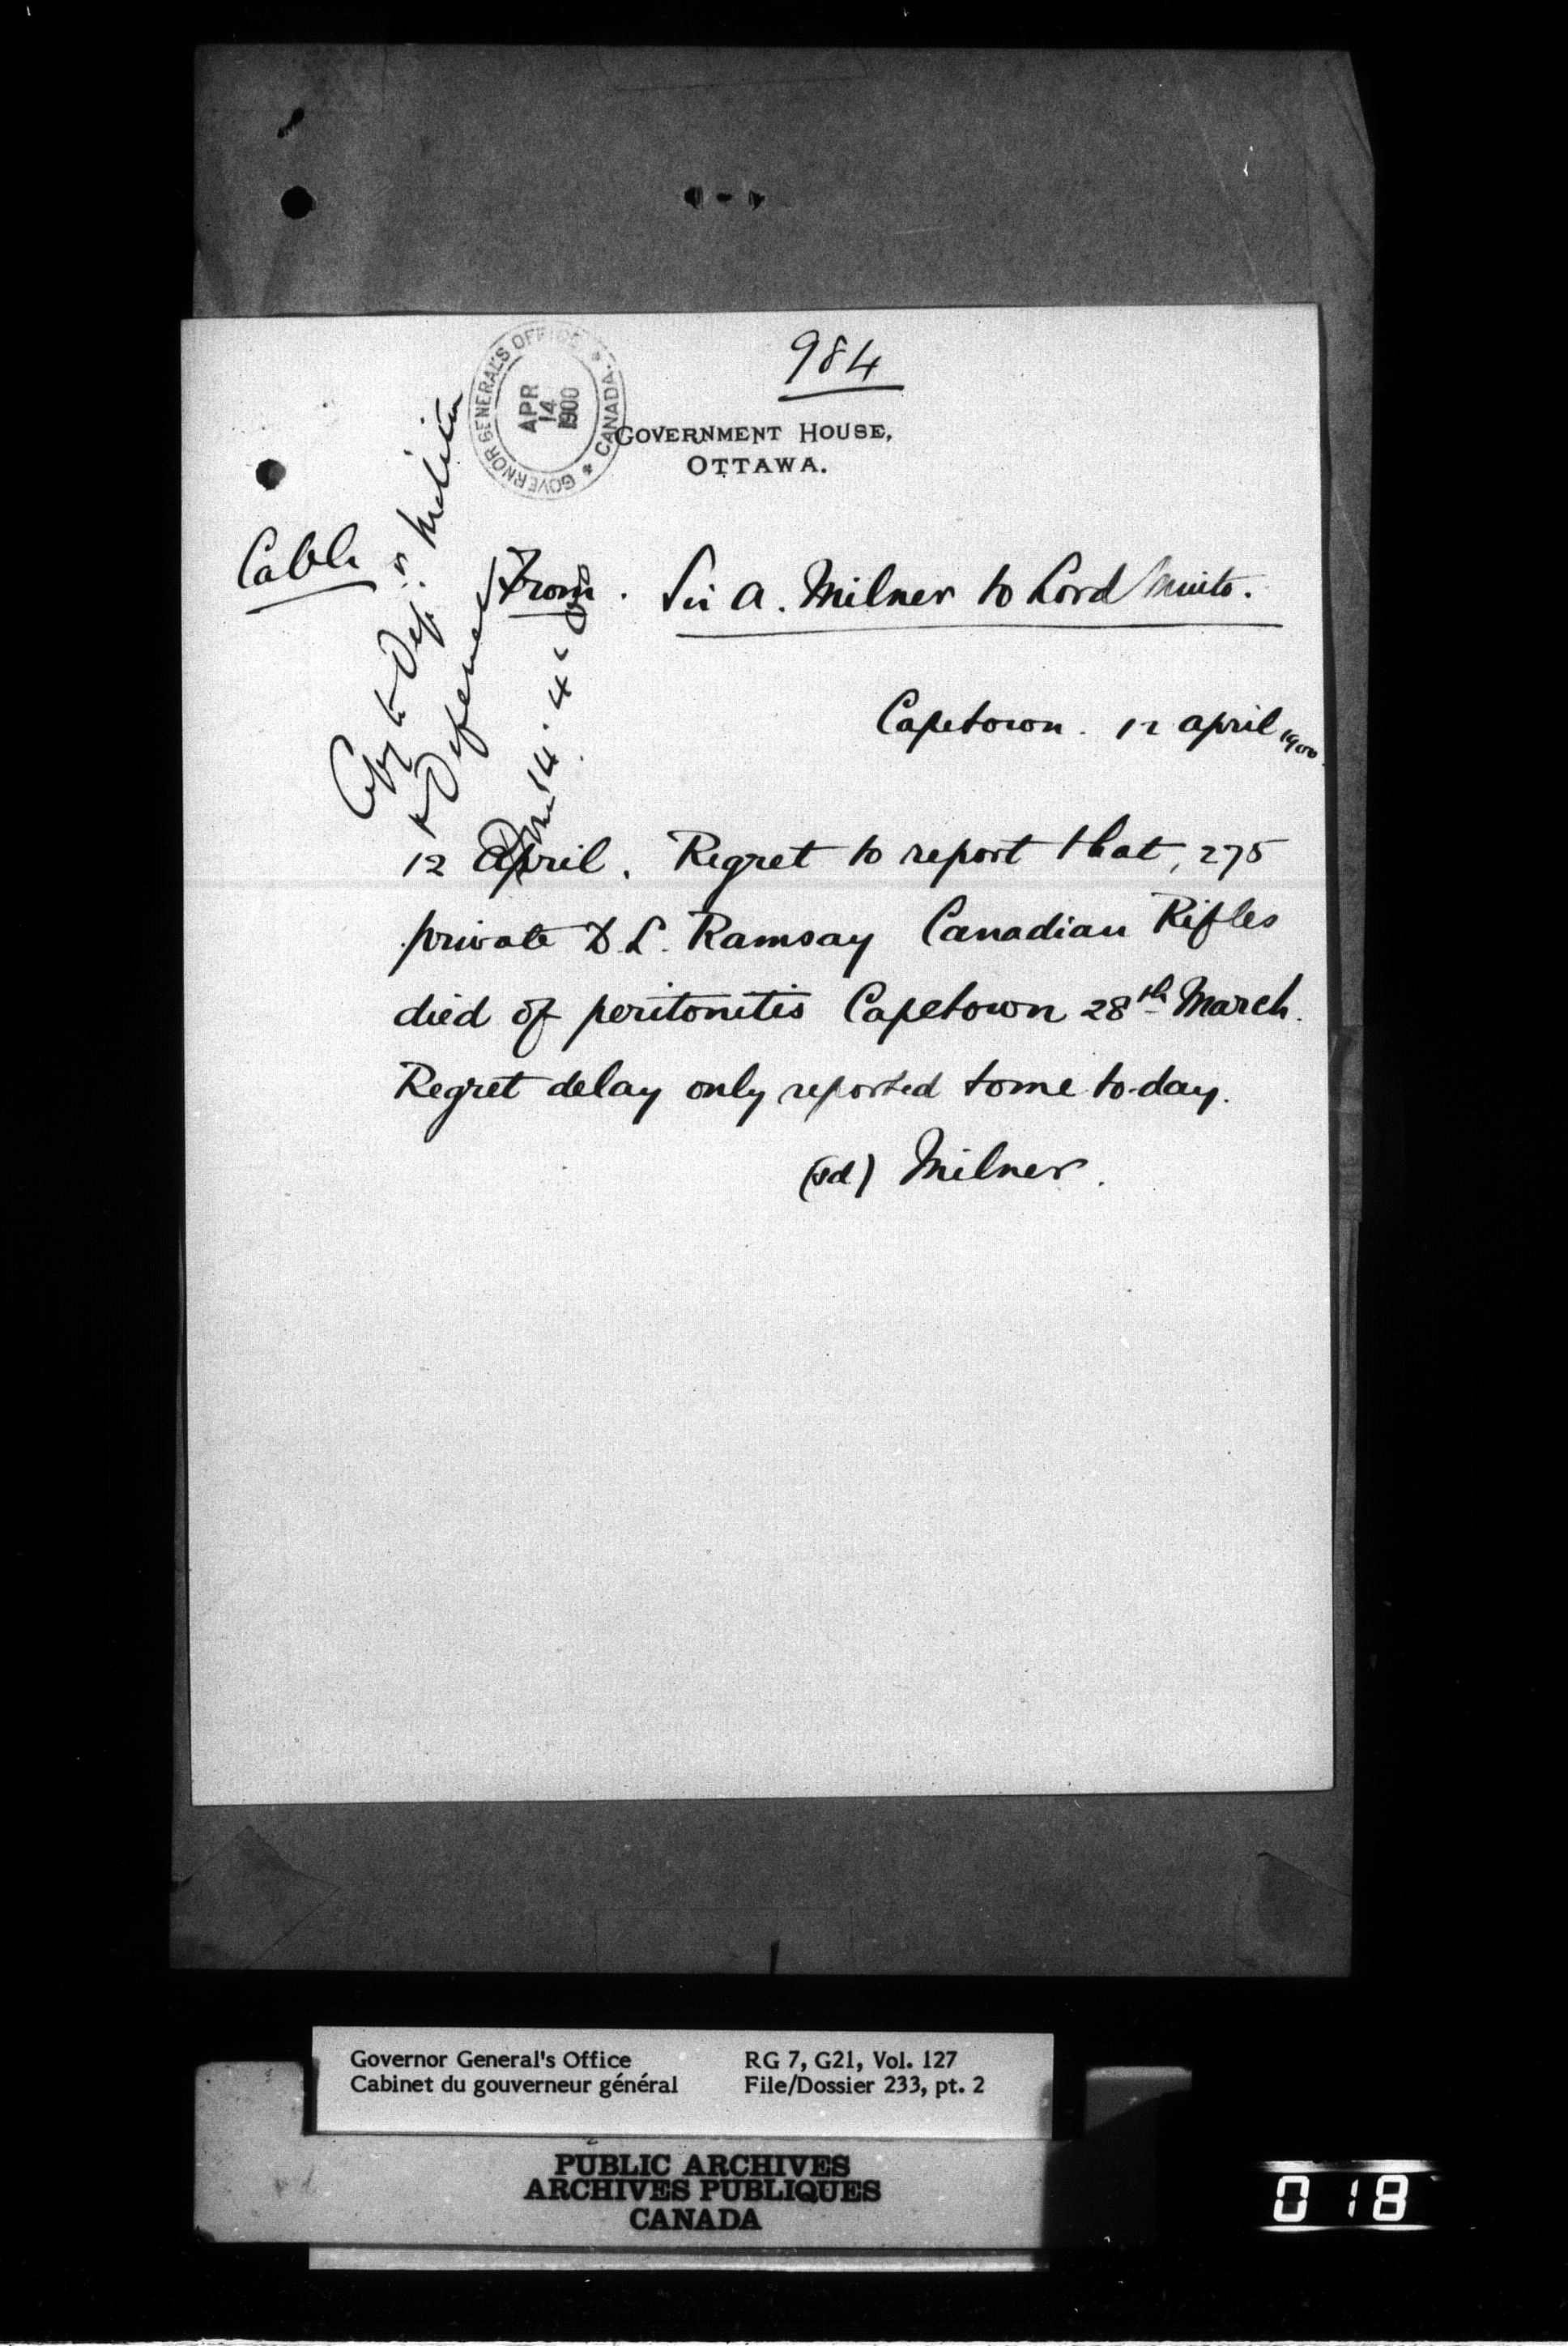 984
GOVERNOR GENERAL'S OFFICE * CANADA. *
APR
14
1900
GOVERNMENT HOUSE,
OTTAWA.
Cable
Copy to Dep. Militia
& Defence
14.4.00
From. Sir A. Milner to Lord Minto.
Capetown. 12 April 1900.
12 April. Regret to report that, 275
private D. L. Ramsay Canadian Rifles
died of peritonitis Capetown 28th March.
Regret delay only reported to me to-day.
(sd) Milner.
Governor General's Office RG 7, G21, Vol. 127
Cabinet du gouverneur général File/Dossier 233, pt. 2
PUBLIC ARCHIVES
ARCHIVES PUBLIQUES
CANADA
018